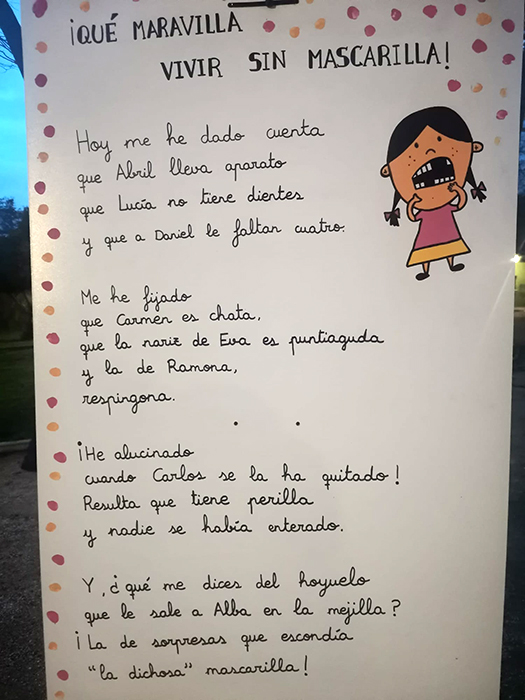 ¡QUÉ MARAVILLA
VIVIR SIN MASCARILLA!
Hoy me he dado cuenta
que Abril lleva aparato
que Lucía no tiene dientes
y que a Daniel le faltan cuatro.
Me he fijado
que Carmen es chata,
que la nariz de Eva es puntiaguda
y la de Ramona,
respingona.
¡He alucinado
cuando Carlos se la ha quitado!
Resulta que tiene perilla
y nadie se había enterado.
Y, ¿qué me dices del hoyuelo
que le sale a Alba en la mejilla?
¡La de sorpresas que escondía
"la dichosa" mascarilla!